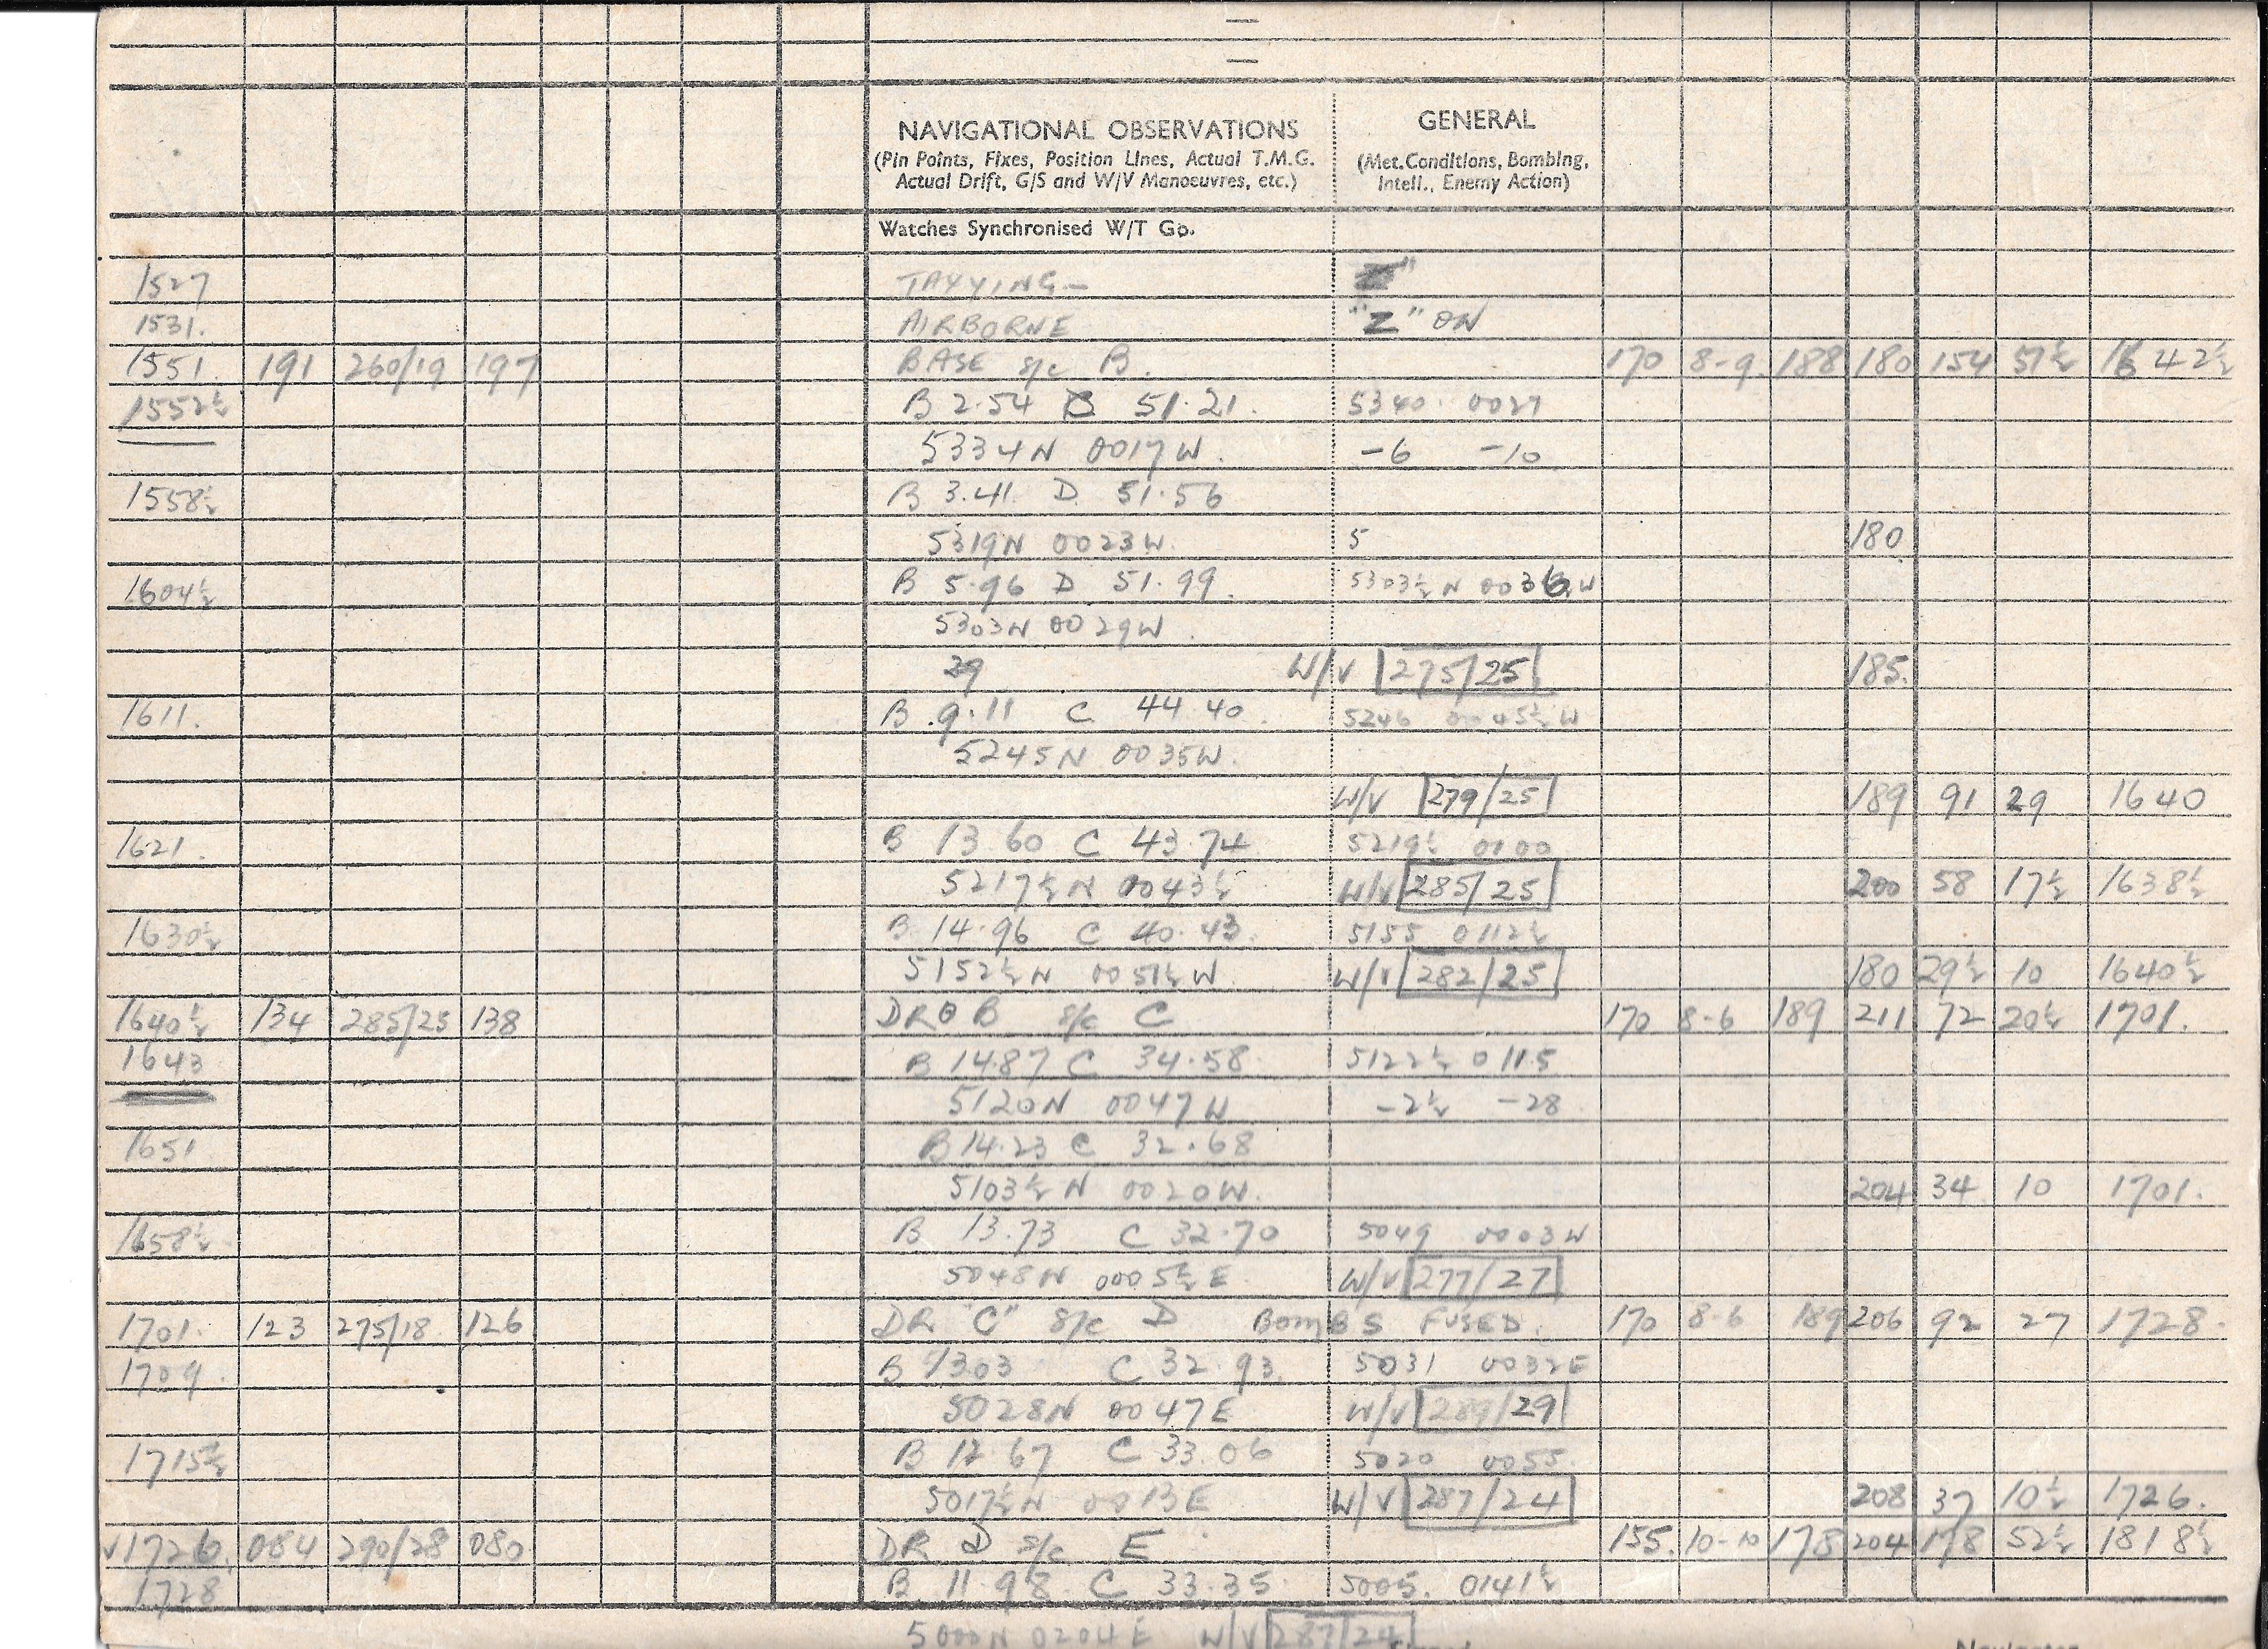 NAVIGATIONAL OBSERVATIONS GENERAL
(Pin Points, Fixes, Position Lines, Actual T.M.G. (Met.Conditions, Bombing,
Actual Drift, G/S and W/V Manoeuvres, etc.) Intell., Enemy Action)
Watches Synchronised W/T Go.
1527 TAXYING—
1531. AIRBORNE "Z" ON
1551 191 260/19 197 BASE S/C B. 170 8-9 188 180 154 51½ 1642½
1552½ B 2.54 51.21. 5340 0027
5334N 0017W. -6 -10
1558½ B 3.41 D 51.56
5319N 0023W. 5 180
1604½ B 5.96 D 51.99. 5303½N 0036W
5303N 0029W.
29 W/V 275/25 185.
1611. B 9.11 C 44.40. 5246 0045½W
5245N 0035W.
W/V 279/25 189 91 29 1640
1621. B 13.60 C 43.74 5219½ 0100
5217½N 0043½ W/V 285/25 200 58 17½ 1638½
1630½ B 14.96 C 40.43. 5155 0112½
5152½N 0051½W W/V 282/25 180 29½ 10 1640½
1640½ 134 285/25 138 DR B S/C C 170 8-6 189 211 72 20½ 1701.
1643 B 14.87 C 34.58 5122½ 0115
5120N 0047W -2½ -28
1651 B 14.23 C 32.68
5103½N 0020W. 204 34 10 1701.
1658½ B 13.73 C 32.70 5049 0003W
5048N 0005½E W/V 277/27
1701. 123 275/18 126 DR "C" S/C D BOMBS FUSED. 170 8-6 189 206 92 27 1728.
1709. B 13.03 C 32.93. 5031 0032E
5028N 0047E W/V 289/29
1715½ B 12.67 C 33.06 5020 0055.
5017½N 0113E W/V 287/24 208 37 10½ 1726.
√1726. 084 290/28 080 DR D S/C E 155. 10-10 178 204 178 52½ 1818½
1728 B 11.98 C 33.35 5005. 0141½
5000N 0204E W/V 287/24